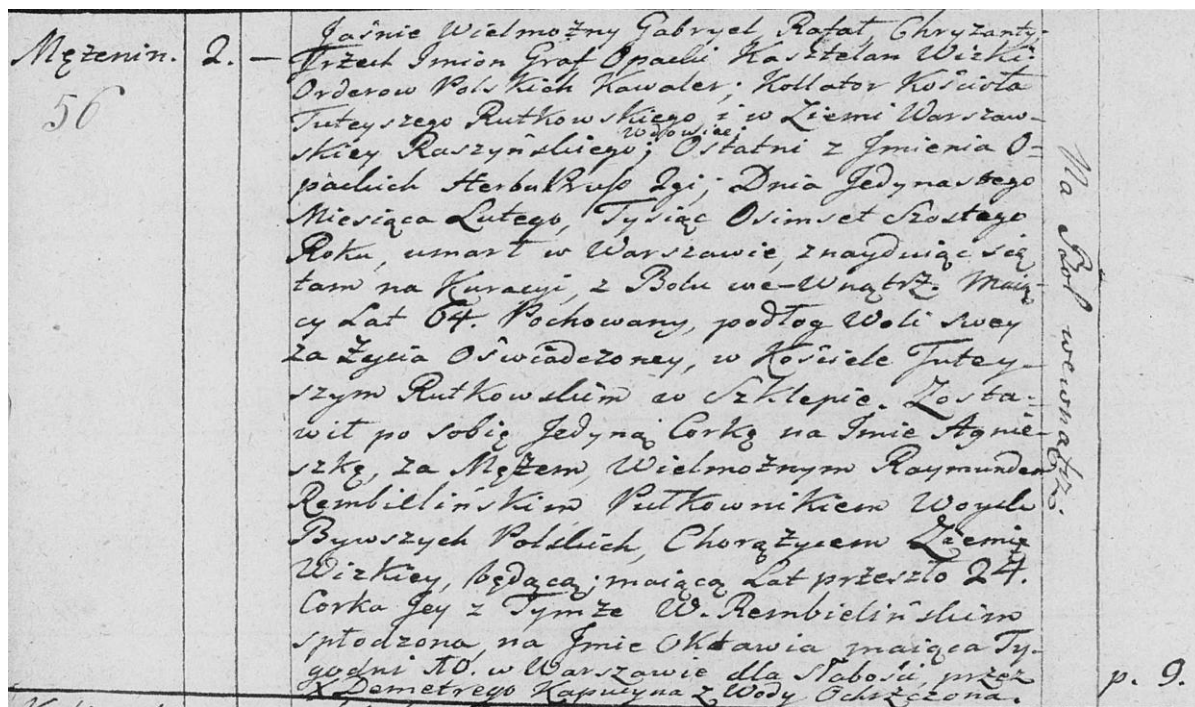 Mężenin.
56
2. —
Jaśnie Wielmożny Gabryel, Rafał, Chryzanty,
Trzech Imion Graf Opacki Kasztelan Wizki
Orderow Polskich Kawaler; Kollator Kościoła
Tuteyszego Rutkowskiego i w Ziemi Warszaw-
skiey Raszyńskiego; Wdowiec; Ostatni z Jmienia O-
packich Herbu Pruss 2gi; Dnia Jedynastego
Miesiąca Lutego, Tysiąc Osimset Szostego
Roku, umarł w Warszawie, znayduiąc się
tam na Kuracyi, z Bolu we-Wnątrz. Maią-
cy Lat 64. Pochowany, podłog Woli swey
za Życia Oświadczoney, w Kościele Tutey-
szym Rutkowskim w Sklepie. Zosta-
wił po sobię Jedyną Corkę na Jmie Agnie-
szkę, za Mężem, Wielmożnym Raymundem
Rembillińskim Pułkownikiem Woysk
Bywszych Polskich, Chorążycem Ziemię
Wizkiey, będącą; maiącą Lat przeszło 24.
Corka Jey z Tymże W. Rembielińskim
spłodzona, na Jmie Oktawia maiąca Ty-
godni 10. w Warszawie dla Słabości, przez
X Demetrego Kapucyna z Wody Ochszczona.
Na Bol wewnątrz.
p. 9.